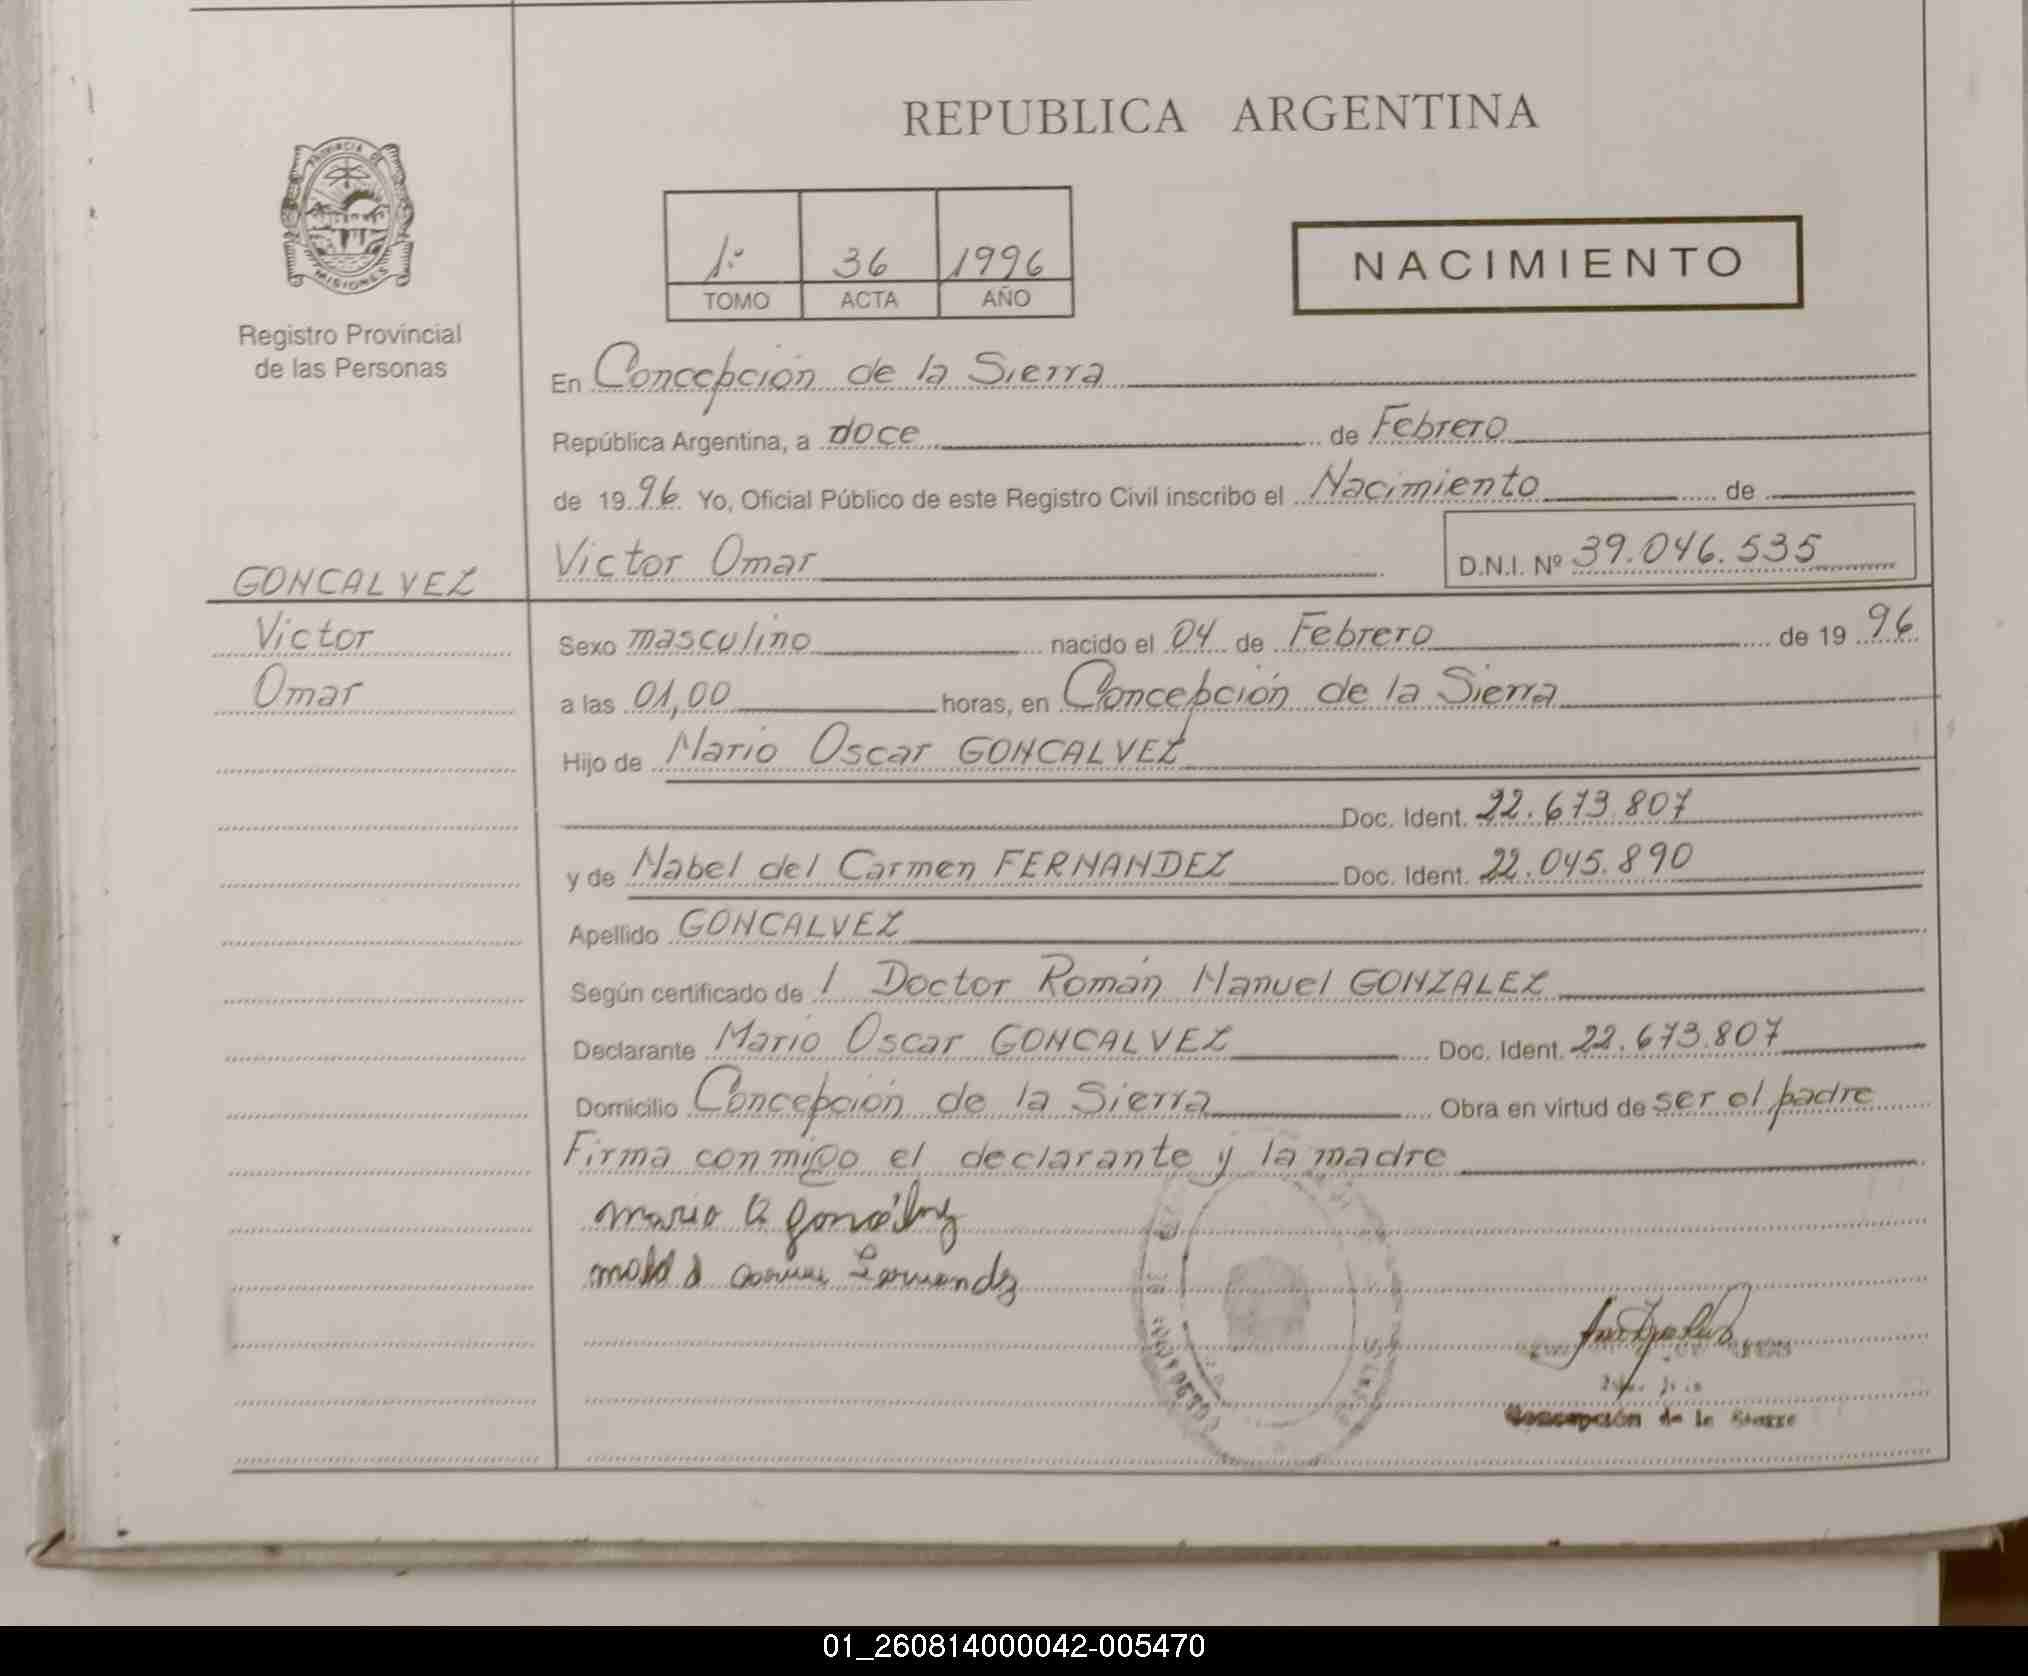 REPUBLICA ARGENTINA
PROVINCIA DE
MISIONES
Registro Provincial
de las Personas
1º 36 1996
TOMO ACTA AÑO
NACIMIENTO
En Concepción de la Sierra
República Argentina, a doce de Febrero
de 1996 Yo, Oficial Público de este Registro Civil inscribo el Nacimiento de
GONCALVEZ
Victor
Omar
Victor Omar D.N.I. Nº 39.046.535
Sexo masculino nacido el 04 de Febrero de 1996
a las 01,00 horas, en Concepción de la Sierra
Hijo de Mario Oscar GONCALVEZ
Doc. Ident. 22.673.807
y de Mabel del Carmen FERNANDEZ Doc. Ident. 22.045.890
Apellido GONCALVEZ
Según certificado de l Doctor Román Manuel GONZALEZ
Declarante Mario Oscar GONCALVEZ Doc. Ident. 22.673.807
Domicilio Concepción de la Sierra Obra en virtud de ser el padre
Firma conmigo el declarante y la madre
Concepción de la Sierra
01_260814000042-005470